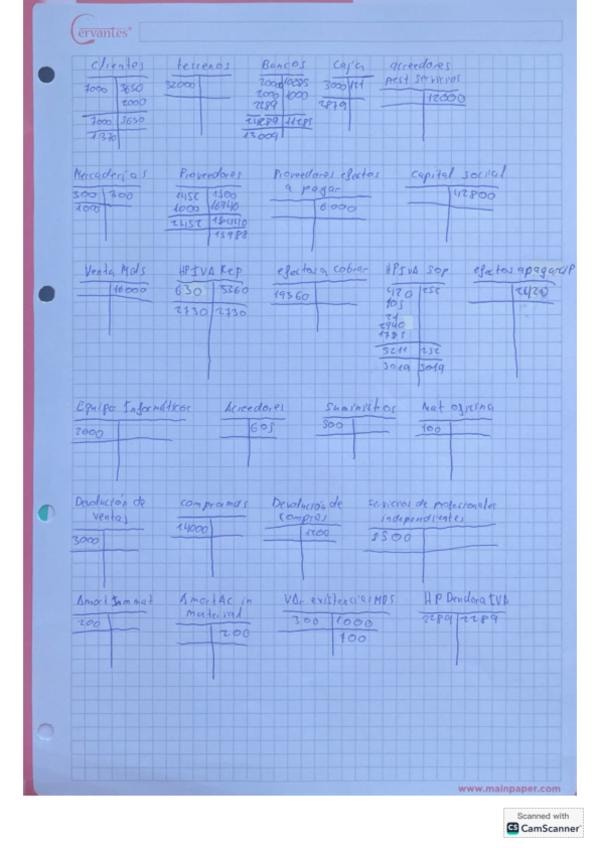 Cervantes
clientes terrenos Bancos Caja acreedores
prest servicios
7000 3630 32000 2000 10285 3000 121 12000
2000 2000 1000 2879
2289
7000 5630
1370 13004
Mercaderias Proveedores Proveedores efectos Capital social
a pagar
300 300 1452 1300 6000 42800
1000 1000 16940
2452
15988
Venta Mds HP IVA Rep efectos a cobrar HP IVA Sop efectos a pagar c/P
16000 630 3360 19360 420 252 2420
2730 2730 105
21
2940
3271 252
3019 3019
Equipo Informáticos Acreedores Suministros Mat oficina
2000 605 500 100
Devolución de compramds Devolución de servicios de profesionales
ventas compras independientes
3000 14000 1200 8500
Amort Inm mat Amort Ac in Var existencias MDS HP Deudora IVA
material
200 200 300 1000 2289 2289
700
www.mainpaper.com
Scanned with
CS CamScanner